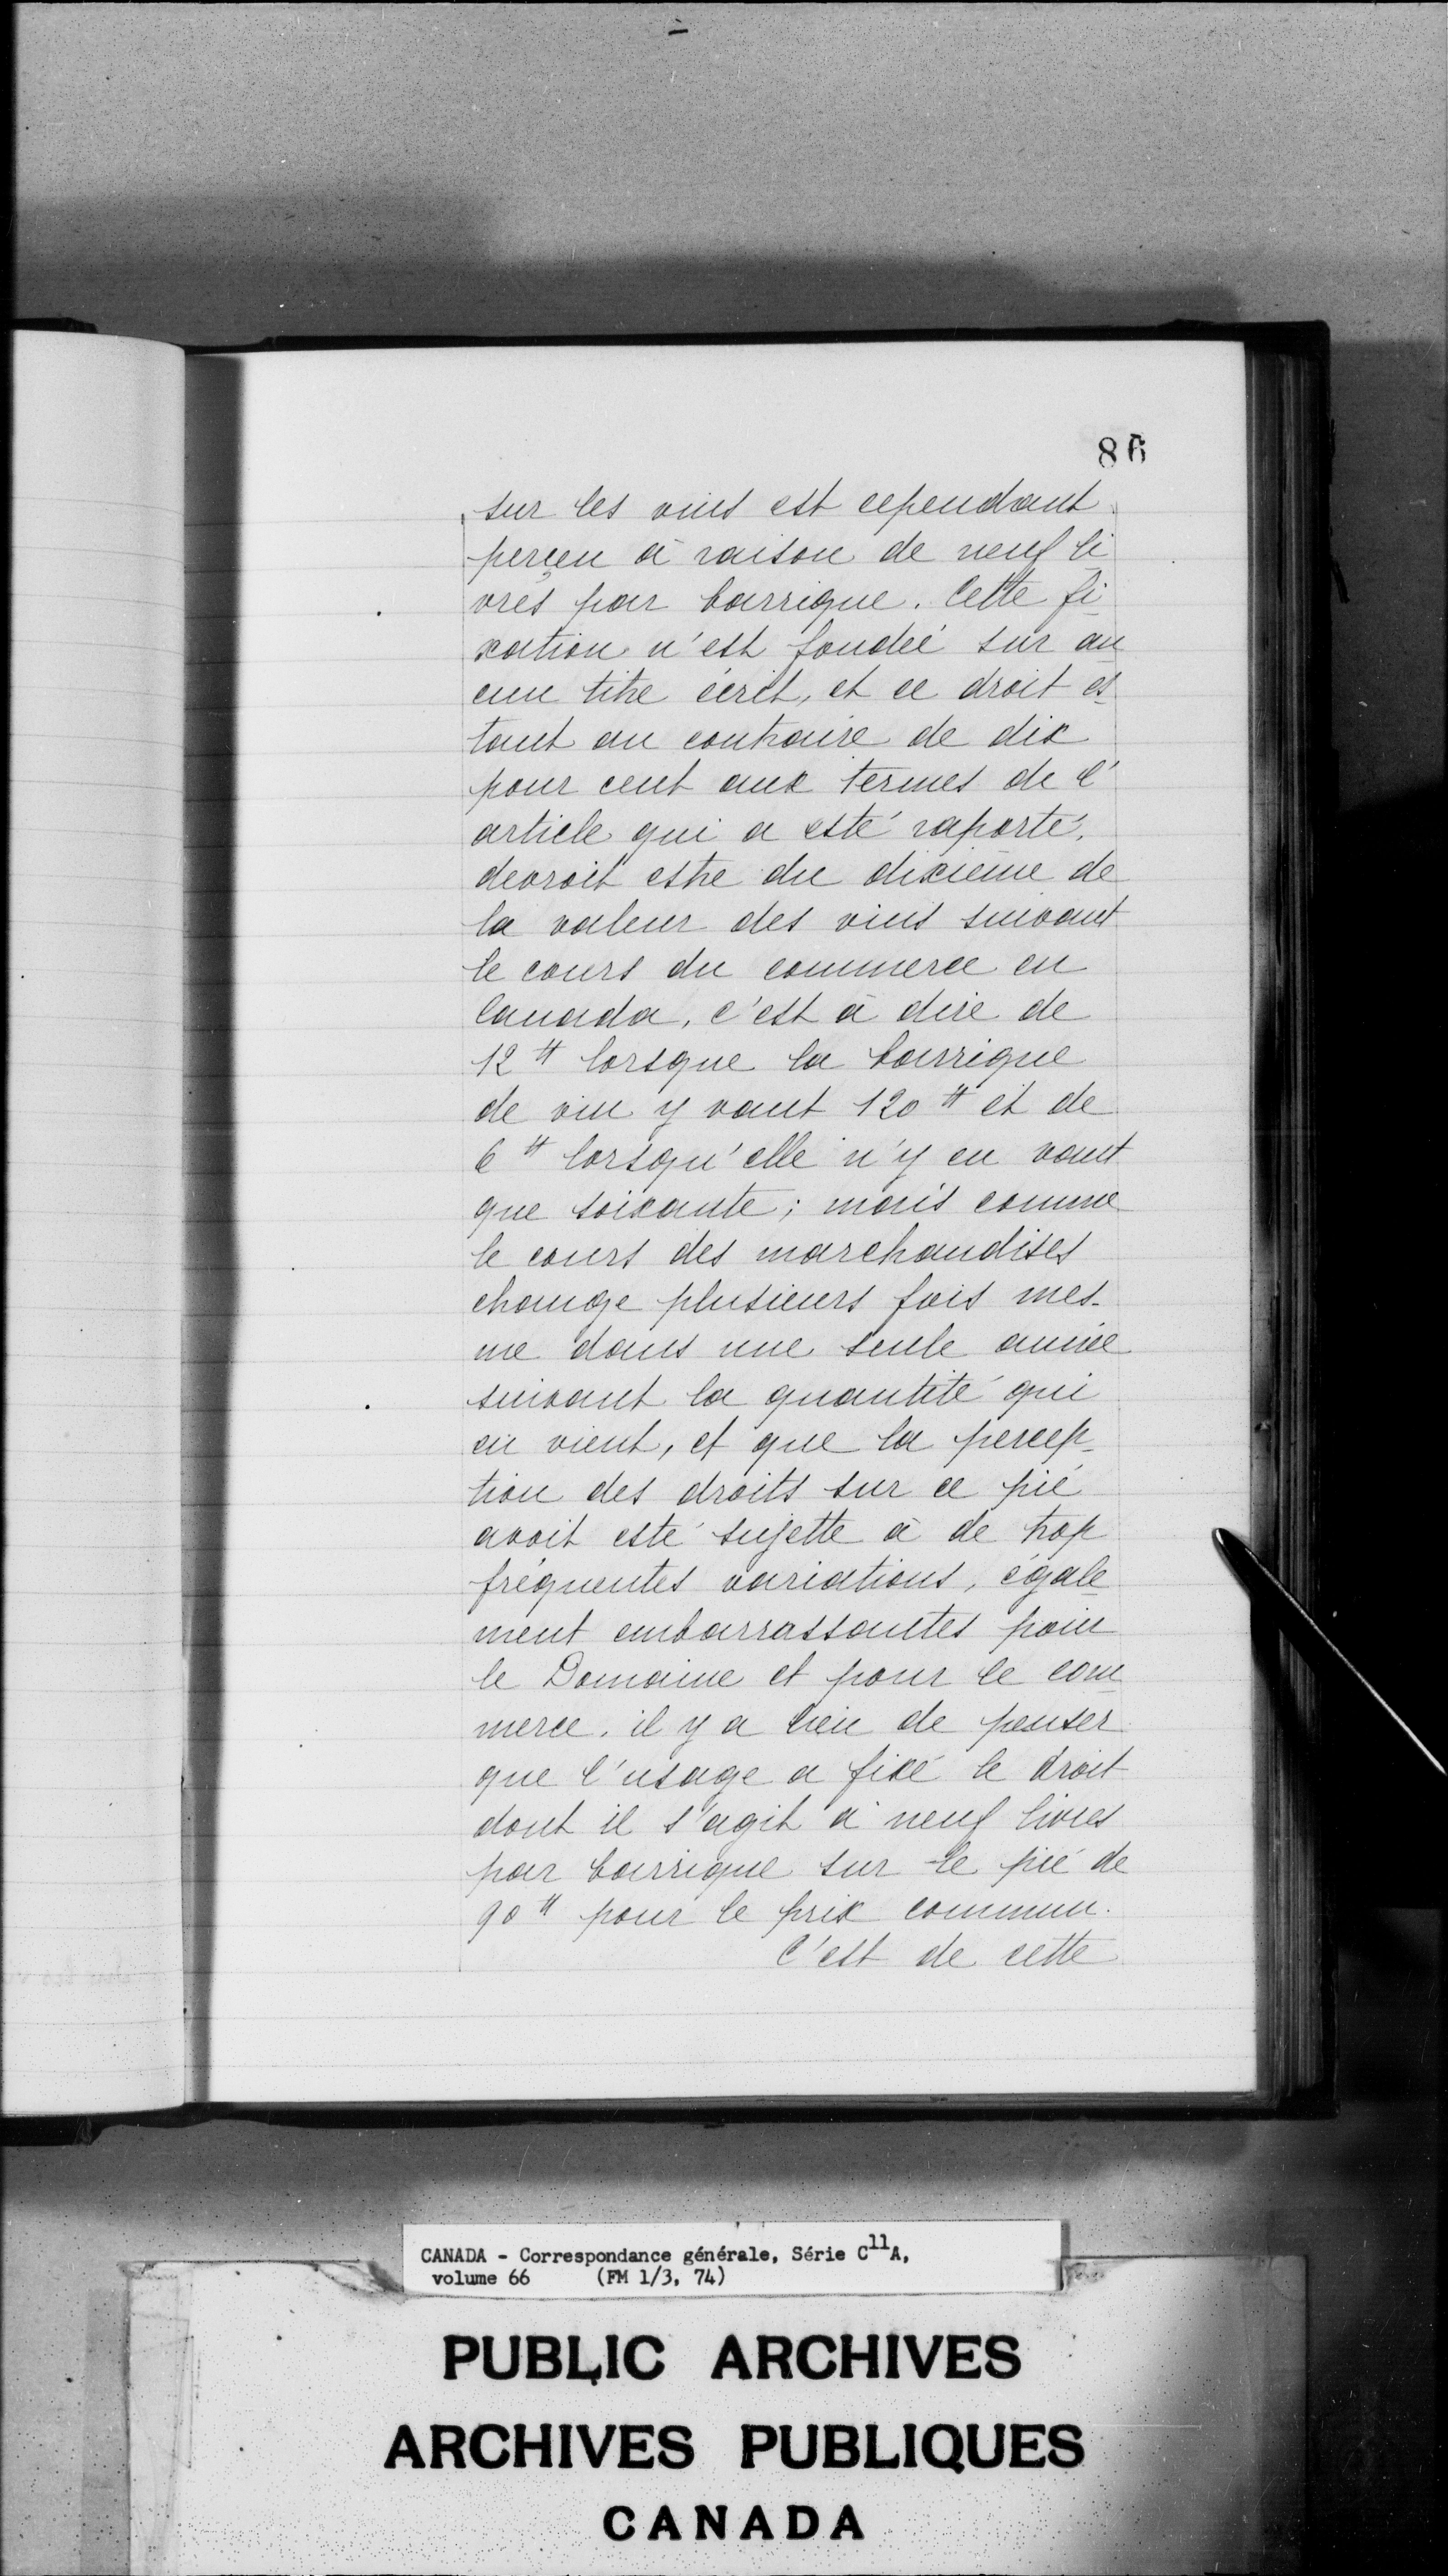 86
sur les vins est cependant
perçeu à raison de neuf li
vres par barrique. Cette fi
xation n'est fondée sur au
cun titre écrit, et ce droit es
tant au contraire de dix
pour cent aux termes de l'
article qui a esté raporté,
devroit estre du dixième de
la valeur des vins suivant
le cours du commerce en
Canada, c'est à dire de
12 ₶ lorsque la barrique
de vin y vaut 120 ₶ et de
6 ₶ lorsqu'elle n'y en vaut
que soixante; mais comme
le cours des marchandises
change plusieurs fois mes-
me dans une seule année
suivant la quantité qui
en vient, et que la percep-
tion des droits sur ce pié
avoit esté sujette à de trop
fréquentes variations, égale
ment embarrassantes pour
le Domaine et pour le com
merce. il y a lieu de penser
que l'usage a fixé le droit
dont il s'agit à neuf livres
par barrique sur le pié de
90 ₶ pour le prix commun.
C'est de cette
CANADA - Correspondance générale, Série C11A,
volume 66 (FM 1/3, 74)
PUBLIC ARCHIVES
ARCHIVES PUBLIQUES
CANADA